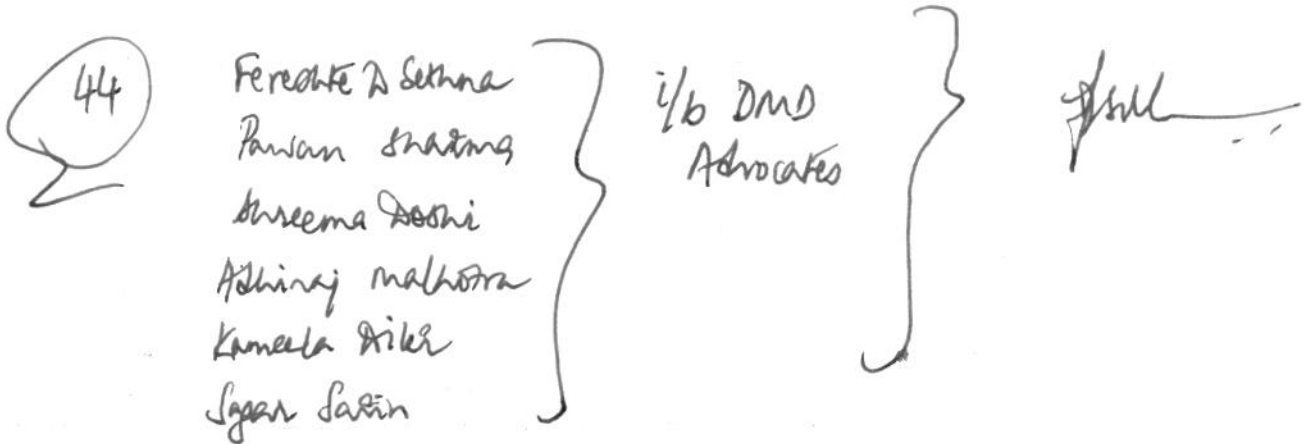 44
Fereshte D Sethna
Pawan Sharma
Shreema Doshi
Adhiraj Malhotra
Kameela
Sagar Sarin
i/b DMD
Advocates